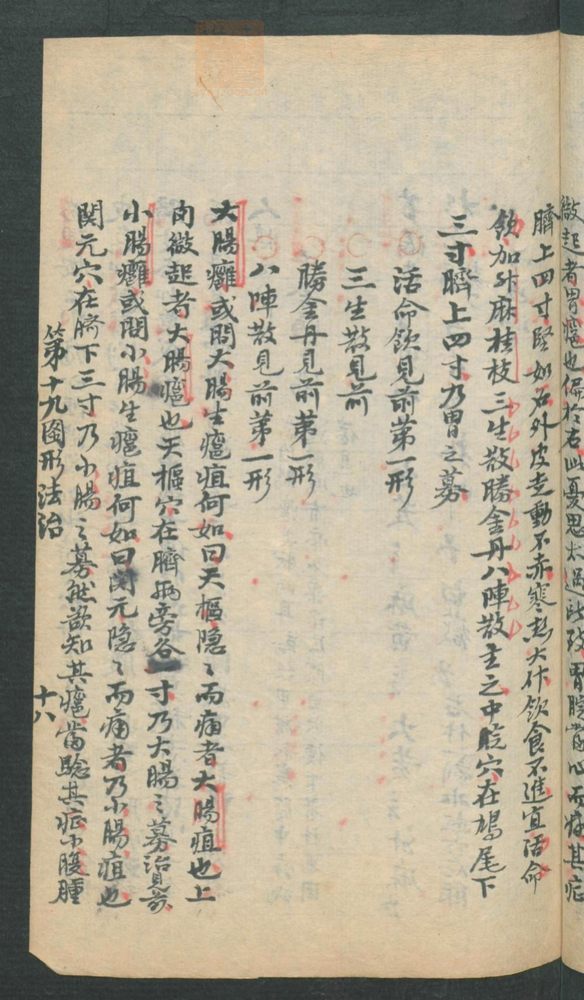 微起者胃癰也偏於右此憂思太過所致胃脘當心而痛其症
臍上四寸堅如石外皮走動不亦寒熱大作飲食不進宜活命
飲加升麻桂枝三生散勝金丹八陣散主之中脘穴在鳩尾下
三寸臍上四寸乃胃之募
活命飲見前第一形
三生散見前
勝金丹見前第一形
八陣散見前第一形
大腸癰或問大腸生癰疽何如曰天樞隱〻而痛者大腸疽也上
肉微起者大腸癰也天樞穴在臍兩旁各一寸乃大腸之募治見前
小腸癰或問小腸生癰疽何如曰關元隱〻而痛者乃小腸疽也
関元穴在臍下三寸乃小腸之募然欲知其癰當驗其症小腹腫
第十九圖形法治
十八